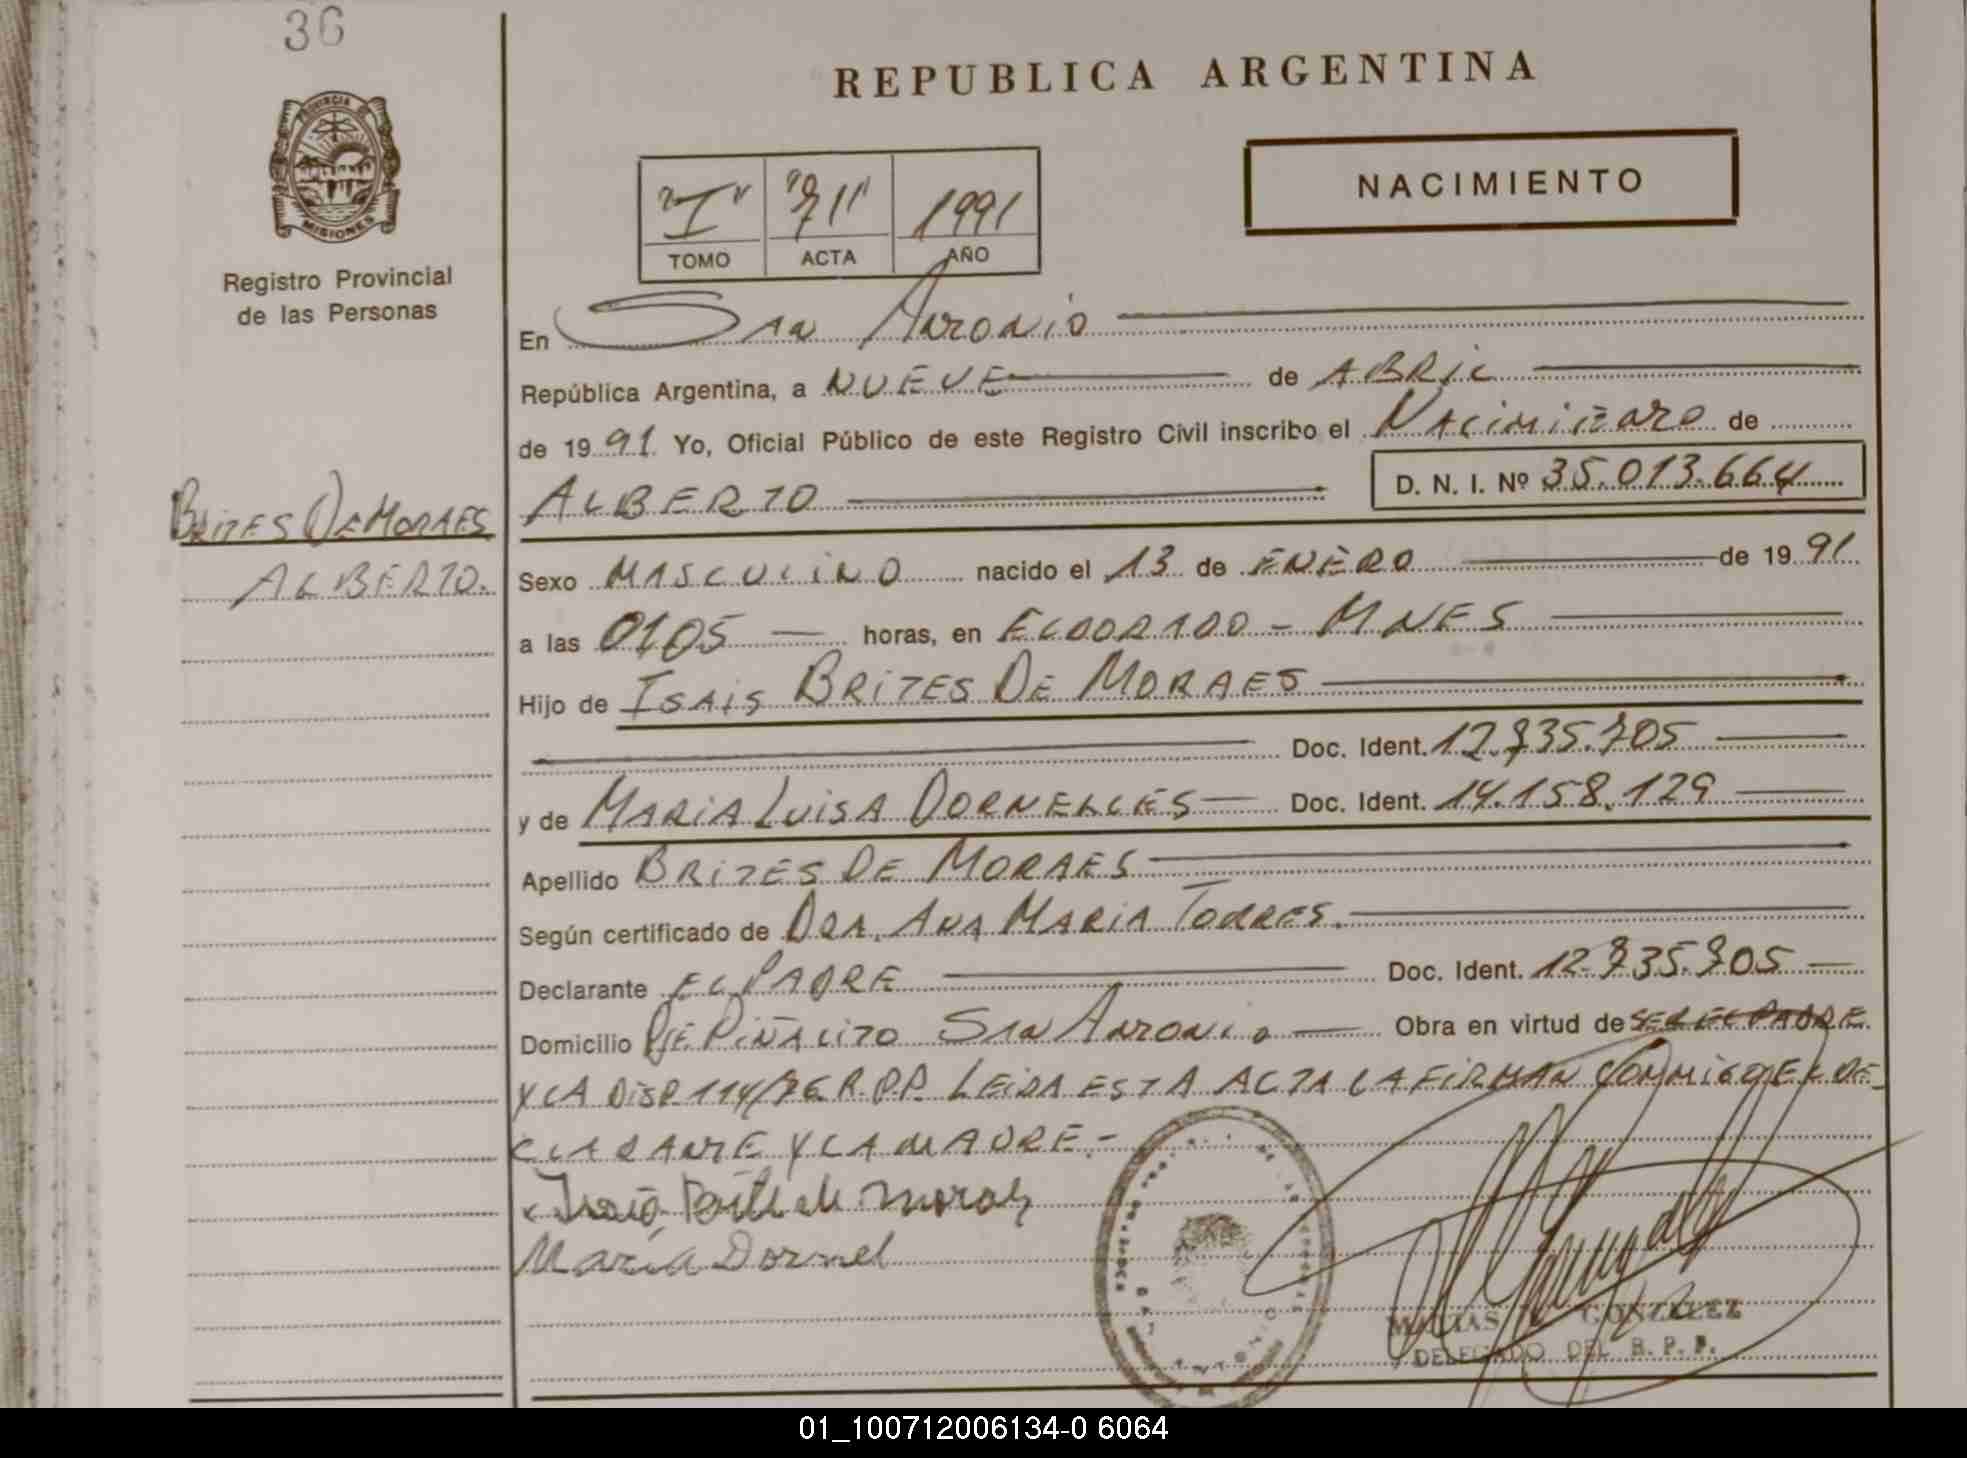 36
REPUBLICA ARGENTINA
PROVINCIA DE
MISIONES
Registro Provincial
de las Personas
"I" "71" 1991
TOMO ACTA AÑO
NACIMIENTO
En San Antonio
República Argentina, a NUEVE de ABRIL
de 1991 Yo, Oficial Público de este Registro Civil inscribo el Nacimiento de
ALBERTO D. N. I. Nº 35.013.664
BRITES DE MORAES
ALBERTO.
Sexo MASCULINO nacido el 13 de ENERO de 1991
a las 0105 horas, en ELDORADO - MNES
Hijo de ISAIS BRITES DE MORAES
Doc. Ident. 12.735.705
y de MARIA LUISA DORNELLES Doc. Ident. 14.158.129
Apellido BRITES DE MORAES
Según certificado de DRA. ANA MARIA TORRES.
Declarante EL PADRE Doc. Ident. 12.735.705
Domicilio PJE PIÑALITO SAN ANTONIO Obra en virtud de SER EL PADRE
Y LA DISP. 114/76 R.P.P. LEIDA ESTA ACTA LA FIRMAN CONMIGO EL DE-
CLARANTE Y LA MADRE.-
María Dornel
MATIAS GONZALEZ
DELEGADO DEL R. P. P.
01_100712006134-0 6064